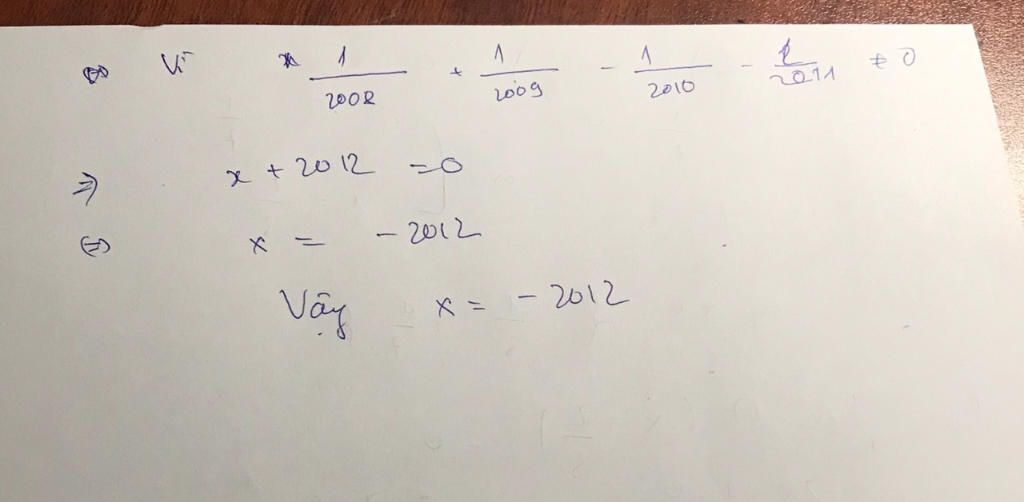 ⇔ Vì 1/2008 + 1/2009 - 1/2010 - 1/2011 ≠ 0
⇒ x + 2012 = 0
⇔ x = - 2012
Vậy x = - 2012